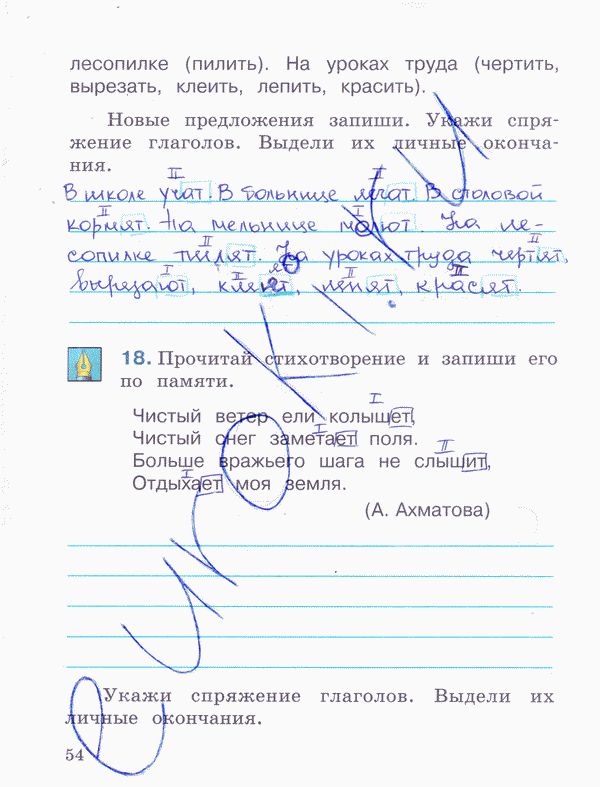 лесопилке (пилить). На уроках труда (чертить,
вырезать, клеить, лепить, красить).
Новые предложения запиши. Укажи спря-
жение глаголов. Выдели их личные оконча-
ния.
II II
В школе учат. В больнице лечат. В столовой
II I
кормят. На мельнице мелют. На ле-
II II
сопилке пилят. На уроках труда чертят,
I II II
вырезают, клеят, лепят, красят.
18. Прочитай стихотворение и запиши его
по памяти.
I
Чистый ветер ели колышет,
I
Чистый снег заметает поля.
II
Больше вражьего шага не слышит,
I
Отдыхает моя земля.
(А. Ахматова)
Укажи спряжение глаголов. Выдели их
личные окончания.
54
eurokи.ru